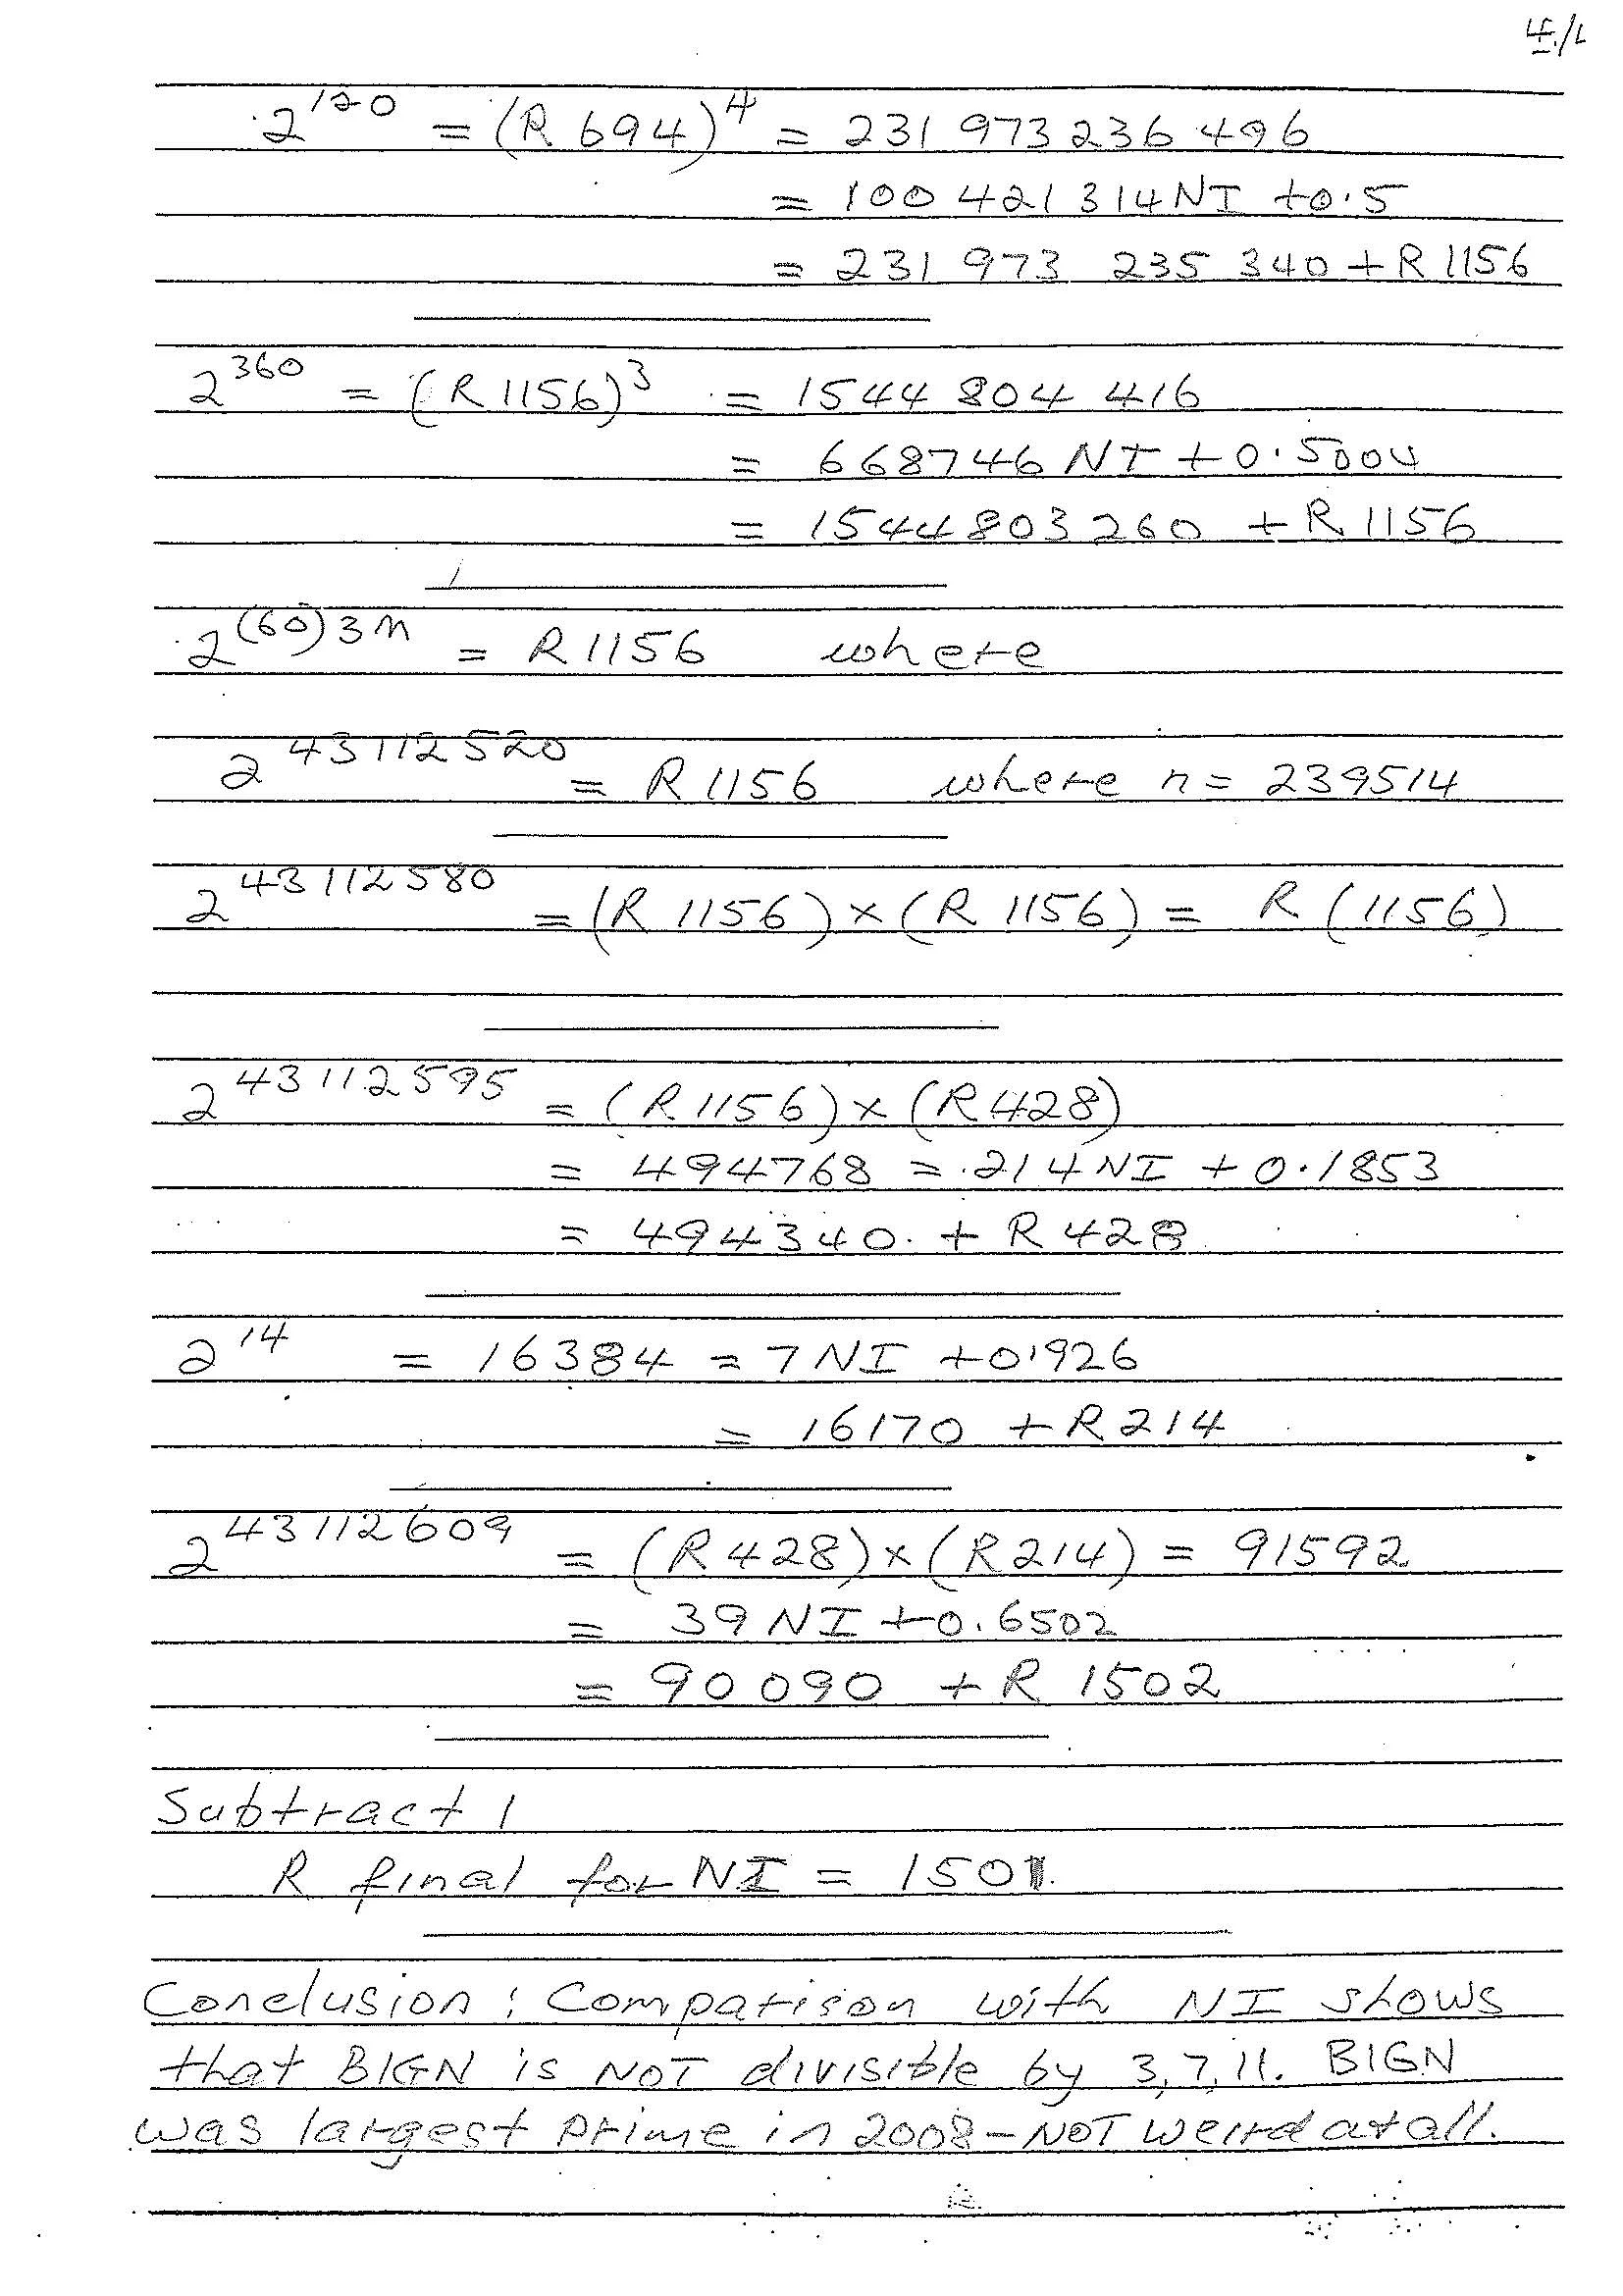 4./1
2^120 = (R 694)^4 = 231 973 236 496
= 100 421 314 NI + 0.5
= 231 973 235 340 + R 1156
2^360 = (R 1156)^3 = 1544 804 416
= 668746 NI + 0.5004
= 1544803260 + R 1156
2^(60)3n = R 1156 where
2^43112520 = R 1156 where n = 239514
2^43112580 = (R 1156) × (R 1156) = R (1156)
2^43112595 = (R 1156) × (R 428)
= 494768 = 214 NI + 0.1853
= 494340. + R 428
2^14 = 16384 = 7 NI + 0.926
= 16170 + R 214
2^43112609 = (R 428) × (R 214) = 91592
= 39 NI + 0.6502
= 90 090 + R 1502
Subtract 1
R final for NI = 1501.
Conclusion : Comparison with NI shows
that BIGN is NOT divisible by 3, 7, 11. BIGN
was largest prime in 2008 – NOT weird at all.